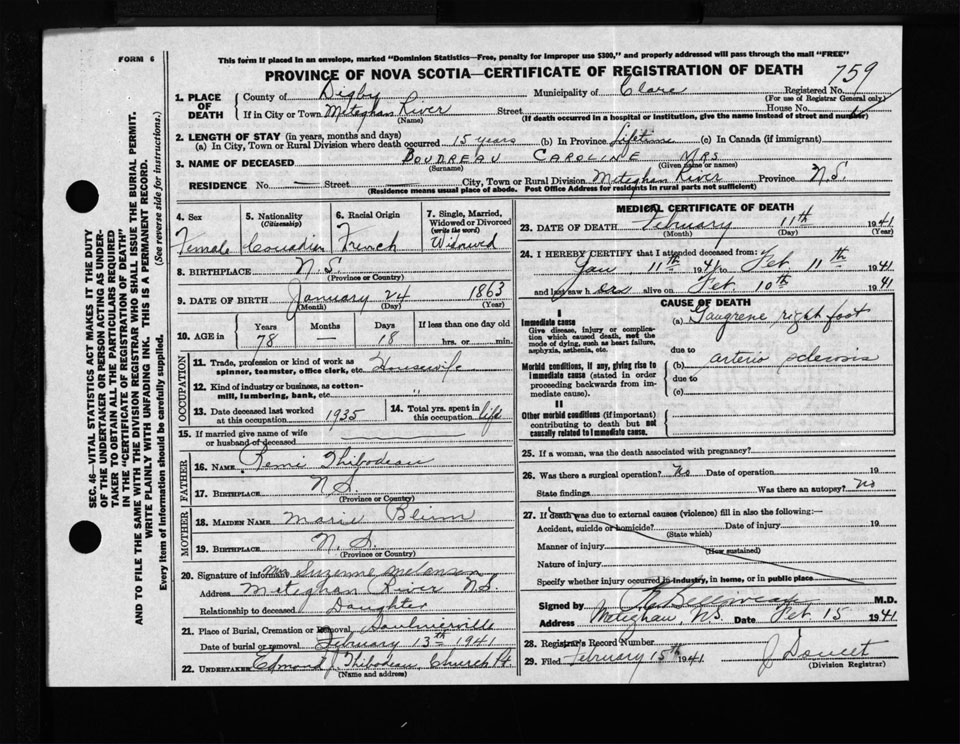 FORM 6
This form if placed in an envelope, marked "Dominion Statistics—Free, penalty for improper use $300," and properly addressed will pass through the mail "FREE"
PROVINCE OF NOVA SCOTIA—CERTIFICATE OF REGISTRATION OF DEATH
759
1. PLACE OF DEATH
County of Digby Municipality of Clare Registered No.
(For use of Registrar General only)
If in City or Town Meteghan River Street House No.
(Name) (If death occurred in a hospital or institution, give the name instead of street and number)
2. LENGTH OF STAY (in years, months and days)
(a) In City, Town or Rural Division where death occurred 15 years (b) In Province Lifetime (c) In Canada (if immigrant)
3. NAME OF DECEASED BOUDREAU CAROLINE MRS
(Surname) (Given name or names)
RESIDENCE No. — Street — City, Town or Rural Division Meteghan River Province N.S.
(Residence means usual place of abode. Post Office Address for residents in rural parts not sufficient)
SEC. 46—VITAL STATISTICS ACT MAKES IT THE DUTY
OF THE UNDERTAKER OR PERSON ACTING AS UNDER-
TAKER TO OBTAIN ALL THE PARTICULARS REQUIRED
IN THE "CERTIFICATE OF REGISTRATION OF DEATH"
AND TO FILE THE SAME WITH THE DIVISION REGISTRAR WHO SHALL ISSUE THE BURIAL PERMIT.
WRITE PLAINLY WITH UNFADING INK. THIS IS A PERMANENT RECORD.
Every item of information should be carefully supplied. (See reverse side for instructions.)
4. Sex
Female
5. Nationality
(Citizenship)
Canadian
6. Racial Origin
French
7. Single, Married, Widowed or Divorced
(write the word)
Widowed
8. BIRTHPLACE N.S.
(Province or Country)
9. DATE OF BIRTH January 24 1863
(Month) (Day) (Year)
10. AGE in Years Months Days If less than one day old
78 — 18 hrs. or min.
OCCUPATION
11. Trade, profession or kind of work as
spinner, teamster, office clerk, etc. Housewife
12. Kind of industry or business, as cotton-
mill, lumbering, bank, etc. " "
13. Date deceased last worked
at this occupation 1935
14. Total yrs. spent in
this occupation life
15. If married give name of wife
or husband of deceased
FATHER
16. NAME Remi Thibodeau
17. BIRTHPLACE N.S.
(Province or Country)
MOTHER
18. MAIDEN NAME Marie
19. BIRTHPLACE N.S.
(Province or Country)
20. Signature of informant Mrs Suzanne Melanson
Address Meteghan River N.S.
Relationship to deceased Daughter
21. Place of Burial, Cremation or Removal Saulnierville
Date of burial or removal February 13th 1941
22. UNDERTAKER Edmond J. Thibodeau, Church Pt.
(Name and address)
MEDICAL CERTIFICATE OF DEATH
23. DATE OF DEATH February 11th 1941
(Month) (Day) (Year)
24. I HEREBY CERTIFY that I attended deceased from:
Jan. 11th 1941 to Feb 11th 1941
and last saw h er alive on Feb. 10th 1941
CAUSE OF DEATH
I
Immediate cause
Give disease, injury or complica-
tion which caused death, not the
mode of dying, such as heart failure,
asphyxia, asthenia, etc.
(a) Gangrene right foot
due to
Morbid conditions, if any, giving rise to
immediate cause (stated in order
proceeding backwards from im-
mediate cause).
(b) arterio sclerosis
due to
(c)
II
Other morbid conditions (if important)
contributing to death but not
causally related to immediate cause.
25. If a woman, was the death associated with pregnancy?
26. Was there a surgical operation? No Date of operation 19
State findings Was there an autopsy? No
27. If death was due to external causes (violence) fill in also the following:—
Accident, suicide or homicide? Date of injury 19
(State which)
Manner of injury
(How sustained)
Nature of injury
Specify whether injury occurred in industry, in home, or in public place
Signed by Belliveau M.D.
Address Meteghan, N.S. Date Feb 15 1941
28. Registrar's Record Number
29. Filed February 15th 1941 J Doucet
(Division Registrar)